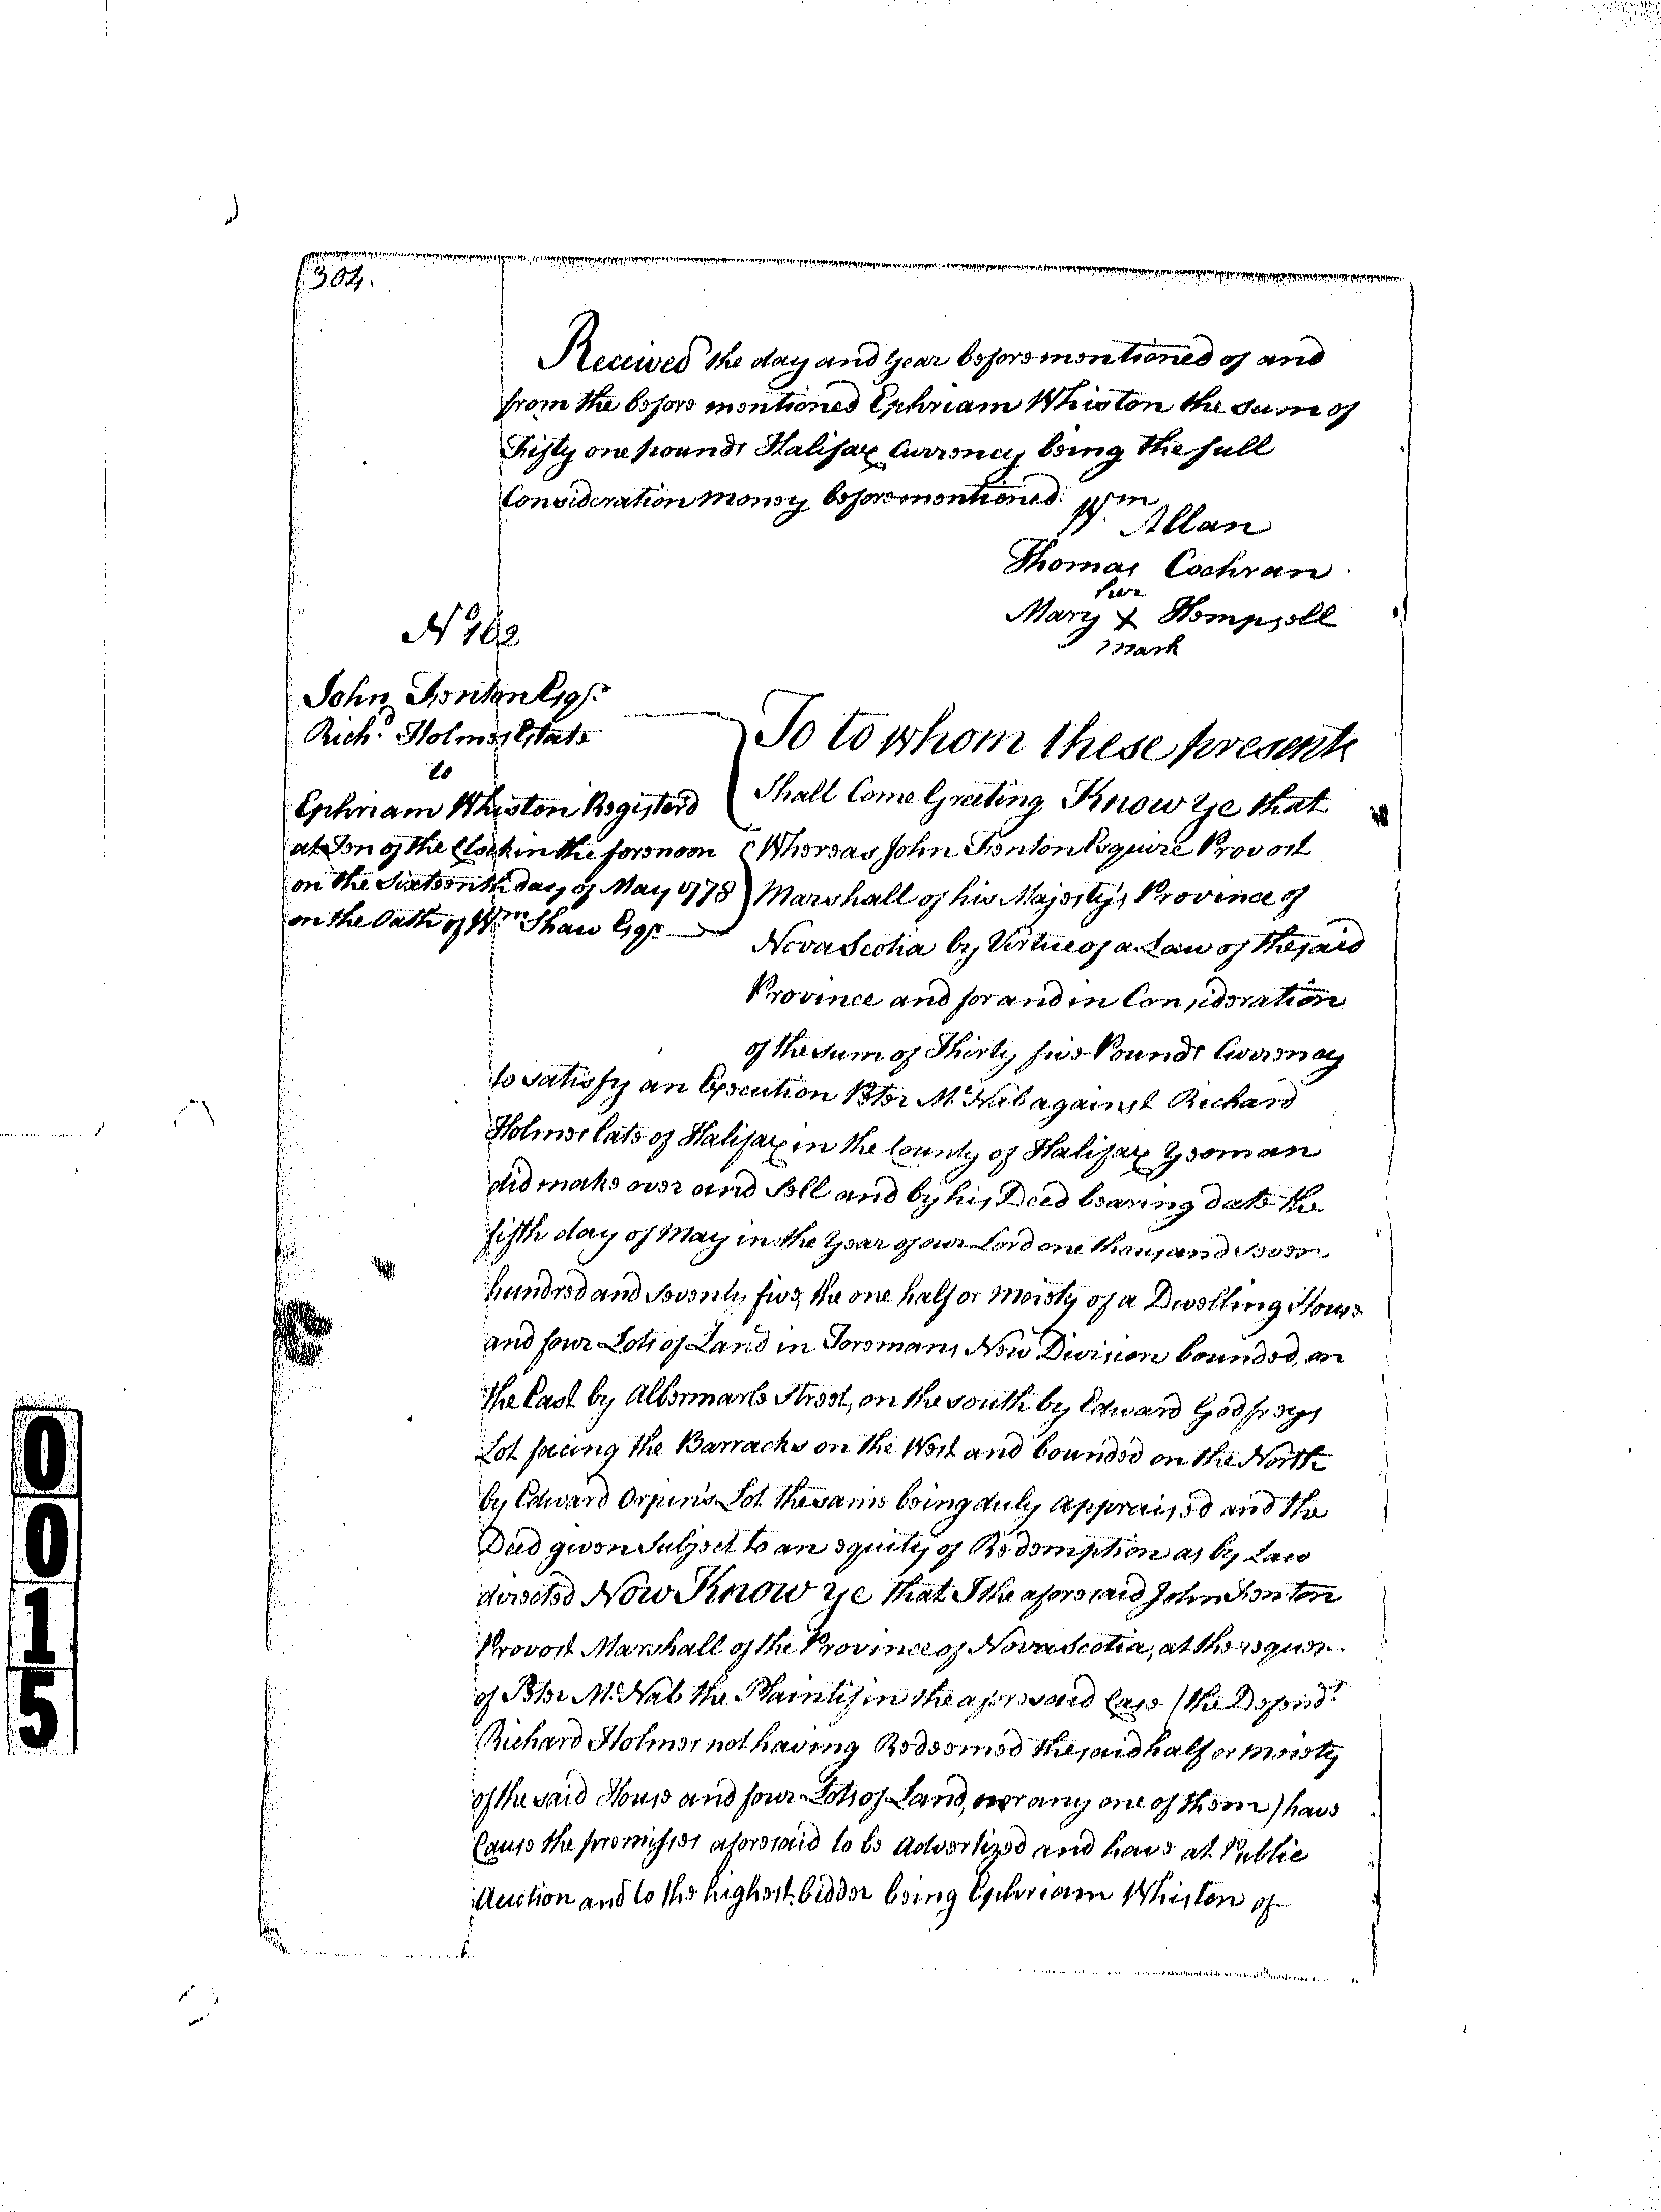 304.
Received the day and Year before mentioned of and
from the before mentioned Ephriam Whiston the sum of
Fifty one pounds Halifax Currency being the full
Consideration money before mentioned.
Wm Allan
Thomas Cochran
her
Mary X Hempsell
mark
No 162
John Fenton Esqr.
Richd. Holmes Estate
to
Ephriam Whiston Registerd
at Ten of the Clock in the forenoon
on the Sixteenth day of May 1778
on the Oath of Wm Shaw Esqr.
To to whom these presents
Shall Come Greeting Know Ye that
Whereas John Fenton Esquire Provost
Marshall of his Majestys Province of
Nova Scotia by Virtue of a Law of the said
Province and for and in Consideration
of the sum of Thirty five Pounds Currency
to satisfy an Execution Peter McNab against Richard
Holmes late of Halifax in the County of Halifax Yeoman
did make over and Sell and by his Deed bearing date the
fifth day of May in the Year of our Lord one thousand Seven
hundred and Seventy five, the one half or Moiety of a Dwelling House
and four Lots of Land in Foremans New Division bounded, on
the East by Albermarle Street, on the south by Edward Godfreys
Lot facing the Barracks on the West and bounded on the North
by Edward Orpin's Lot the same being duly Appraised and the
Deed given Subject to an equity of Redemption as by Law
directed Now Know ye that I the aforesaid John Fenton
Provost Marshall of the Province of Nova Scotia, at the reques
of Peter McNab the Plaintif in the aforesaid Case (the Defendt.
Richard Holmes not having Redeemed the said half or Moiety
of the said House and four Lots of Land, nor any one of them) have
Cause the premisses aforesaid to be Advertized and have at Public
Auction and to the highest bidder being Ephriam Whiston of
0015